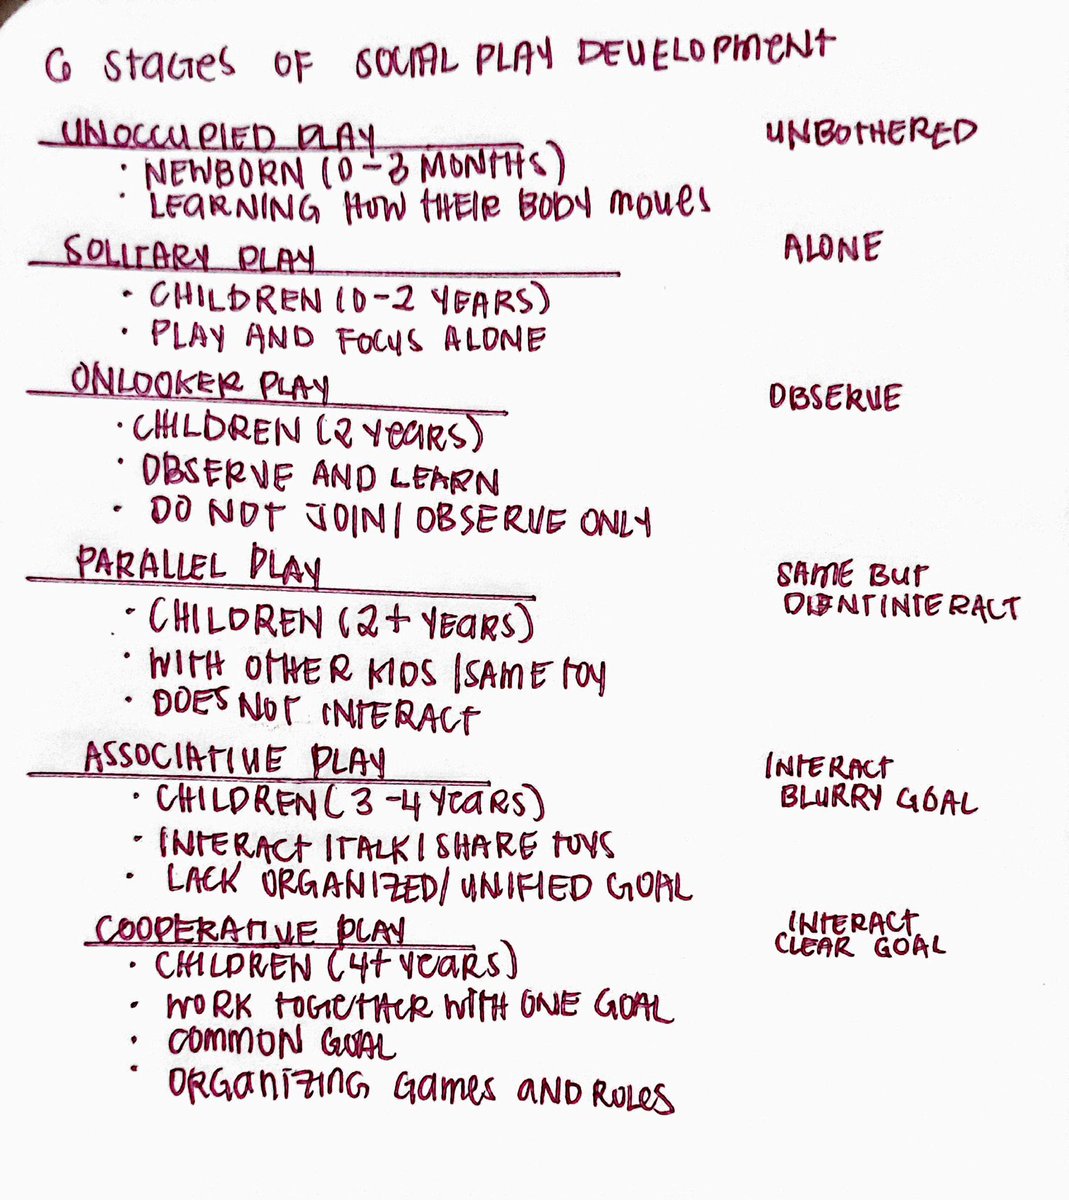 6 STAGES OF SOCIAL PLAY DEVELOPMENT
UNOCCUPIED PLAY UNBOTHERED
· NEWBORN (0-3 MONTHS)
· LEARNING HOW THEIR BODY MOVES
SOLITARY PLAY ALONE
· CHILDREN (0-2 YEARS)
· PLAY AND FOCUS ALONE
ONLOOKER PLAY OBSERVE
· CHILDREN (2 YEARS)
· OBSERVE AND LEARN
· DO NOT JOIN/OBSERVE ONLY
PARALLEL PLAY SAME BUT
DIDNT INTERACT
· CHILDREN (2+ YEARS)
· WITH OTHER KIDS/SAME TOY
· DOES NOT INTERACT
ASSOCIATIVE PLAY INTERACT
BLURRY GOAL
· CHILDREN (3-4 YEARS)
· INTERACT/TALK/SHARE TOYS
· LACK ORGANIZED/UNIFIED GOAL
COOPERATIVE PLAY INTERACT
CLEAR GOAL
· CHILDREN (4+ YEARS)
· WORK TOGETHER WITH ONE GOAL
· COMMON GOAL
· ORGANIZING GAMES AND ROLES